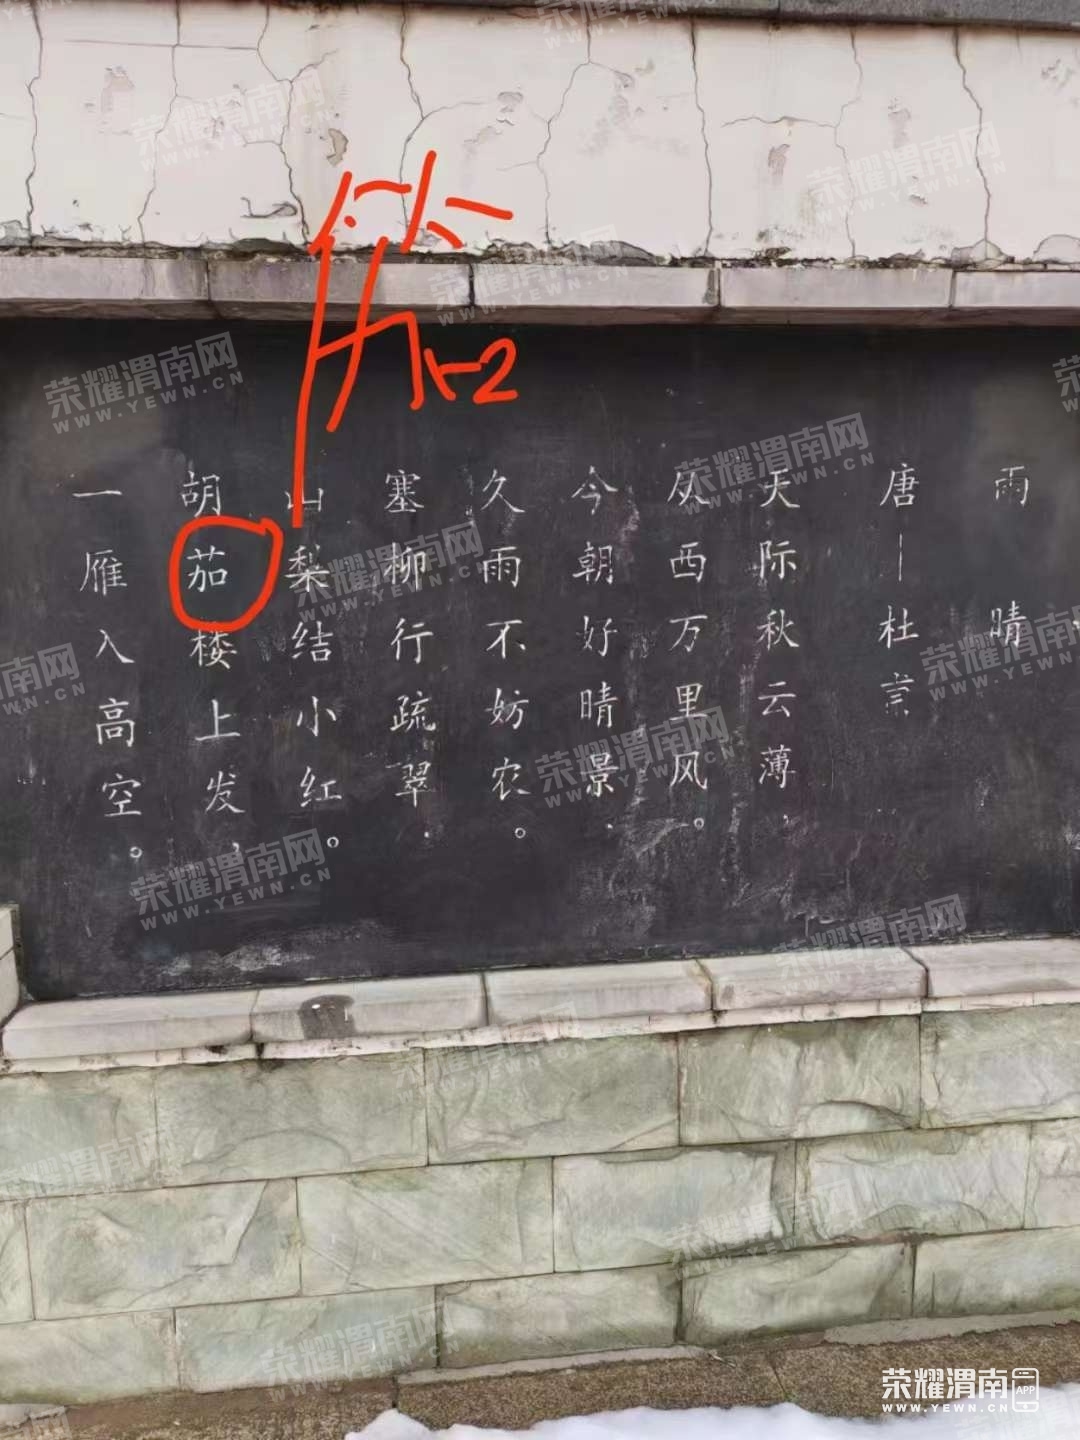 笳
雨晴
唐—杜
天际秋云薄，
从西万里风。
今朝好晴景，
久雨不妨农。
塞柳行疏翠，
山梨结小红。
胡茄楼上发，
一雁入高空。
荣耀渭南网
WWW.YEWN.CN
荣耀渭南 APP
WWW.YEWN.CN